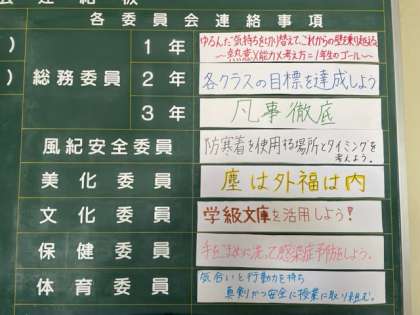 会連絡板
各委員会連絡事項
総務委員
1年
ゆるんだ気持ちを切り替えて、これからの壁を乗り越える
～熱意×能力×考え方=1年生のゴール～
2年
各クラスの目標を達成しよう
3年
凡事徹底
風紀安全委員
防寒着を使用する場所とタイミングを
考えよう。
美化委員
塵は外福は内
文化委員
学級文庫を活用しよう!
保健委員
手をこまめに洗って感染症予防をしよう。
体育委員
気合いと行動力を持ち
真剣かつ安全に授業に取り組む。